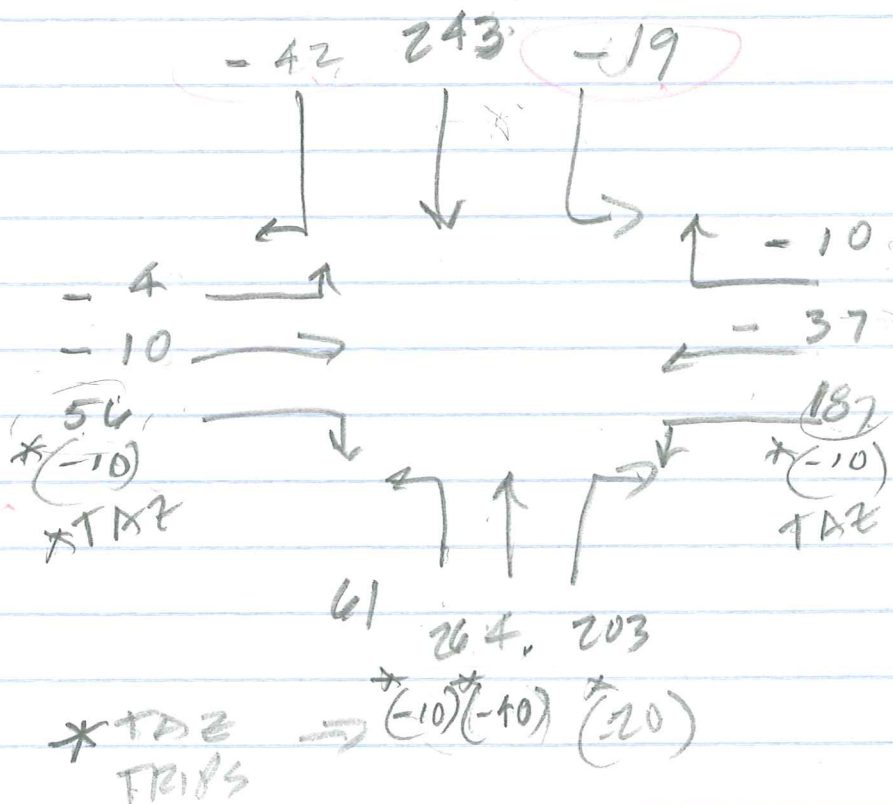 - 42 243 - 19
- 10
- 4
- 37
- 10
56
187
*(-10)
*(-10)
*TAZ
TAZ
61
264. 203
*(-10) *(-40) *(-20)
* TAZ
TRIPS